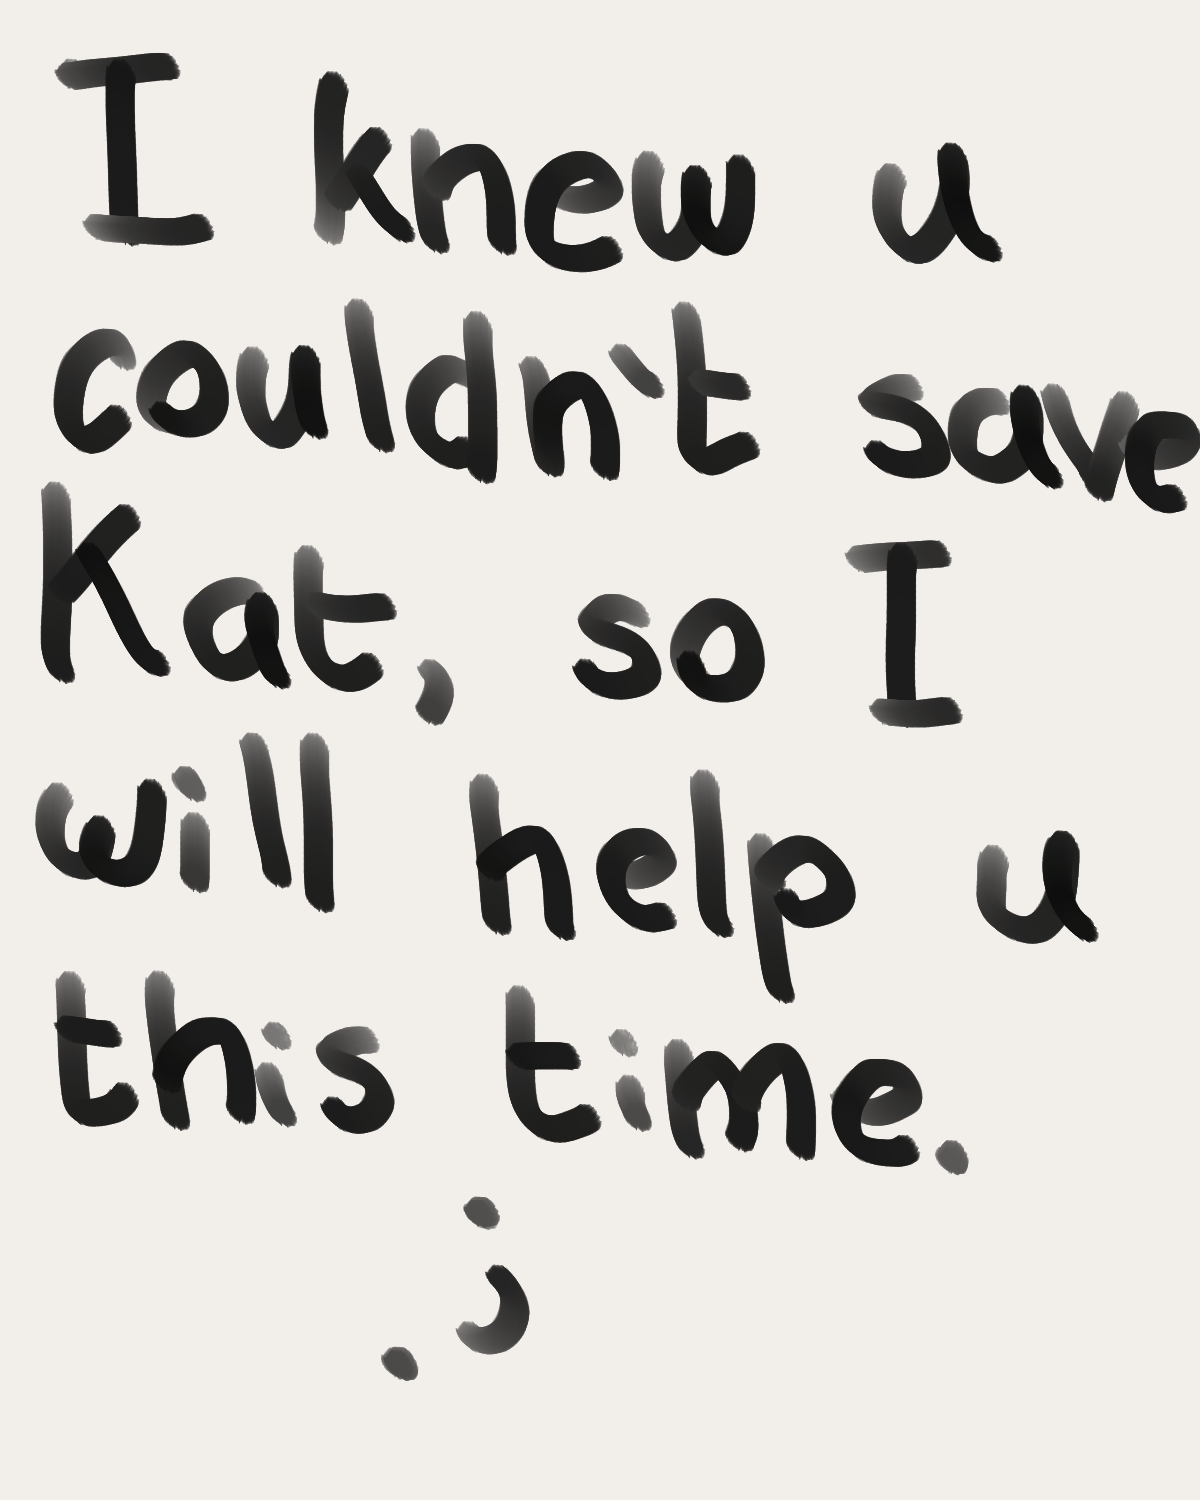 I knew u
couldn`t save
Kat, so I
will help u
this time.